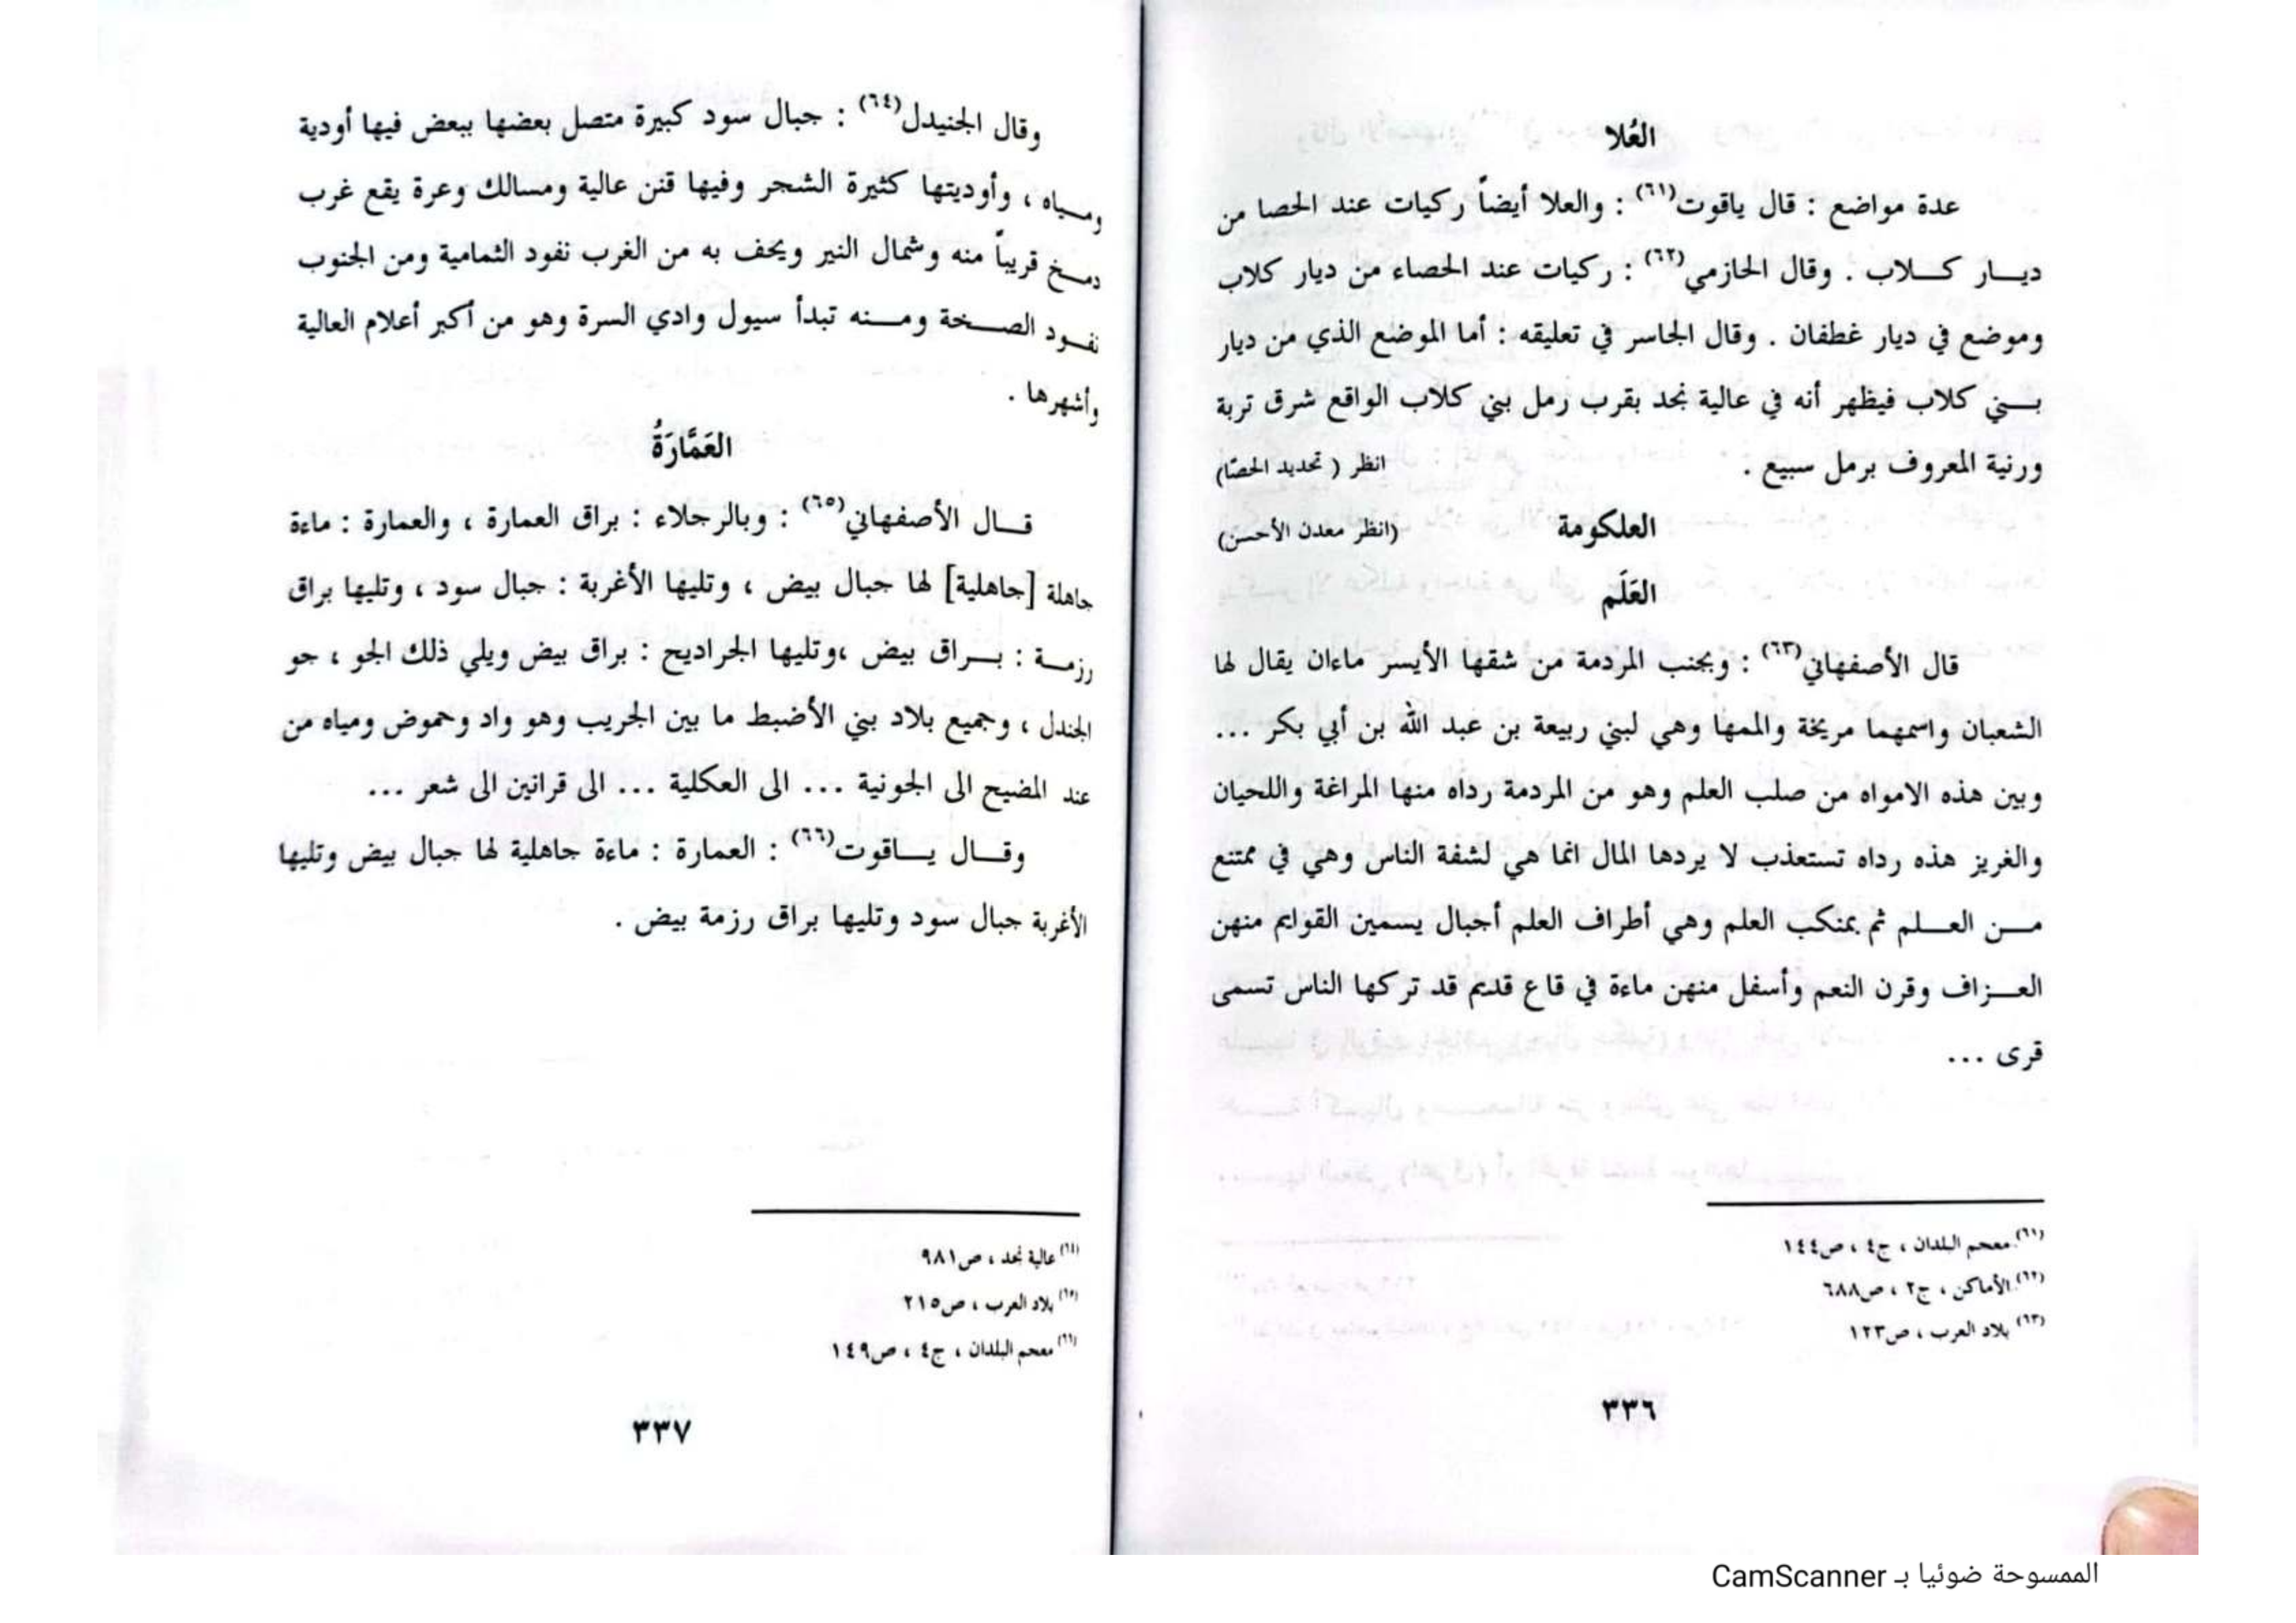 العُلا
عدة مواضع : قال ياقوت(٦١) : والعلا أيضاً ركيات عند الحصا من
ديـــار كـــلاب . وقال الحازمي(٦٢) : ركيات عند الحصاء من ديار كلاب
وموضع في ديار غطفان . وقال الجاسر في تعليقه : أما الموضع الذي من ديار
بـــني كلاب فيظهر أنه في عالية نجد بقرب رمل بني كلاب الواقع شرق تربة
ورنية المعروف برمل سبيع . انظر ( تحديد الحصّا)
العلكومة (انظر معدن الأحسن)
العَلَم
قال الأصفهاني(٦٣) : وبجنب المردمة من شقها الأيسر ماءان يقال لها
الشعبان واسمهما مريخة والممها وهي لبني ربيعة بن عبد الله بن أبي بكر ...
وبين هذه الامواه من صلب العلم وهو من المردمة رداه منها المراغة واللحيان
والغريز هذه رداه تستعذب لا يردها المال انما هي لشفة الناس وهي في ممتنع
مـــن العـــلم ثم بمنكب العلم وهي أطراف العلم أجبال يسمين القوايم منهن
العـــزاف وقرن النعم وأسفل منهن ماءة في قاع قديم قد تركها الناس تسمى
قرى ...
(٦١) معجم البلدان ، ج٤ ، ص١٤٤
(٦٢) الأماكن ، ج٢ ، ص٦٨٨
(٦٣) بلاد العرب ، ص١٢٣
٣٣٦
وقال الجنيدل(٦٤) : جبال سود كبيرة متصل بعضها ببعض فيها أودية
ومـــياه ، وأوديتها كثيرة الشجر وفيها قنن عالية ومسالك وعرة يقع غرب
دمـــخ قريباً منه وشمال النير ويحف به من الغرب نفود الثمامية ومن الجنوب
نفـــود الصـــخة ومـــنه تبدأ سيول وادي السرة وهو من أكبر أعلام العالية
وأشهرها .
العَمَّارَةُ
قـــال الأصفهاني(٦٥) : وبالرحلاء : براق العمارة ، والعمارة : ماءة
جاهلة [جاهلية] لها جبال بيض ، وتليها الأغربة : جبال سود ، وتليها براق
رزمـــة : بـــراق بيض ،وتليها الجراديح : براق بيض ويلي ذلك الجو ، جو
الجندل ، وجميع بلاد بني الأضبط ما بين الجريب وهو واد وحموض ومياه من
عند المضيح الى الجونية ... الى العكلية ... الى قرانين الى شعر ...
وقـــال يـــاقوت(٦٦) : العمارة : ماءة جاهلية لها جبال بيض وتليها
الأغربة جبال سود وتليها براق رزمة بيض .
(٦٤) عالية نجد ، ص٩٨١
(٦٥) بلاد العرب ، ص٢١٥
(٦٦) معجم البلدان ، ج٤ ، ص١٤٩
٣٣٧
الممسوحة ضوئيا بـ CamScanner